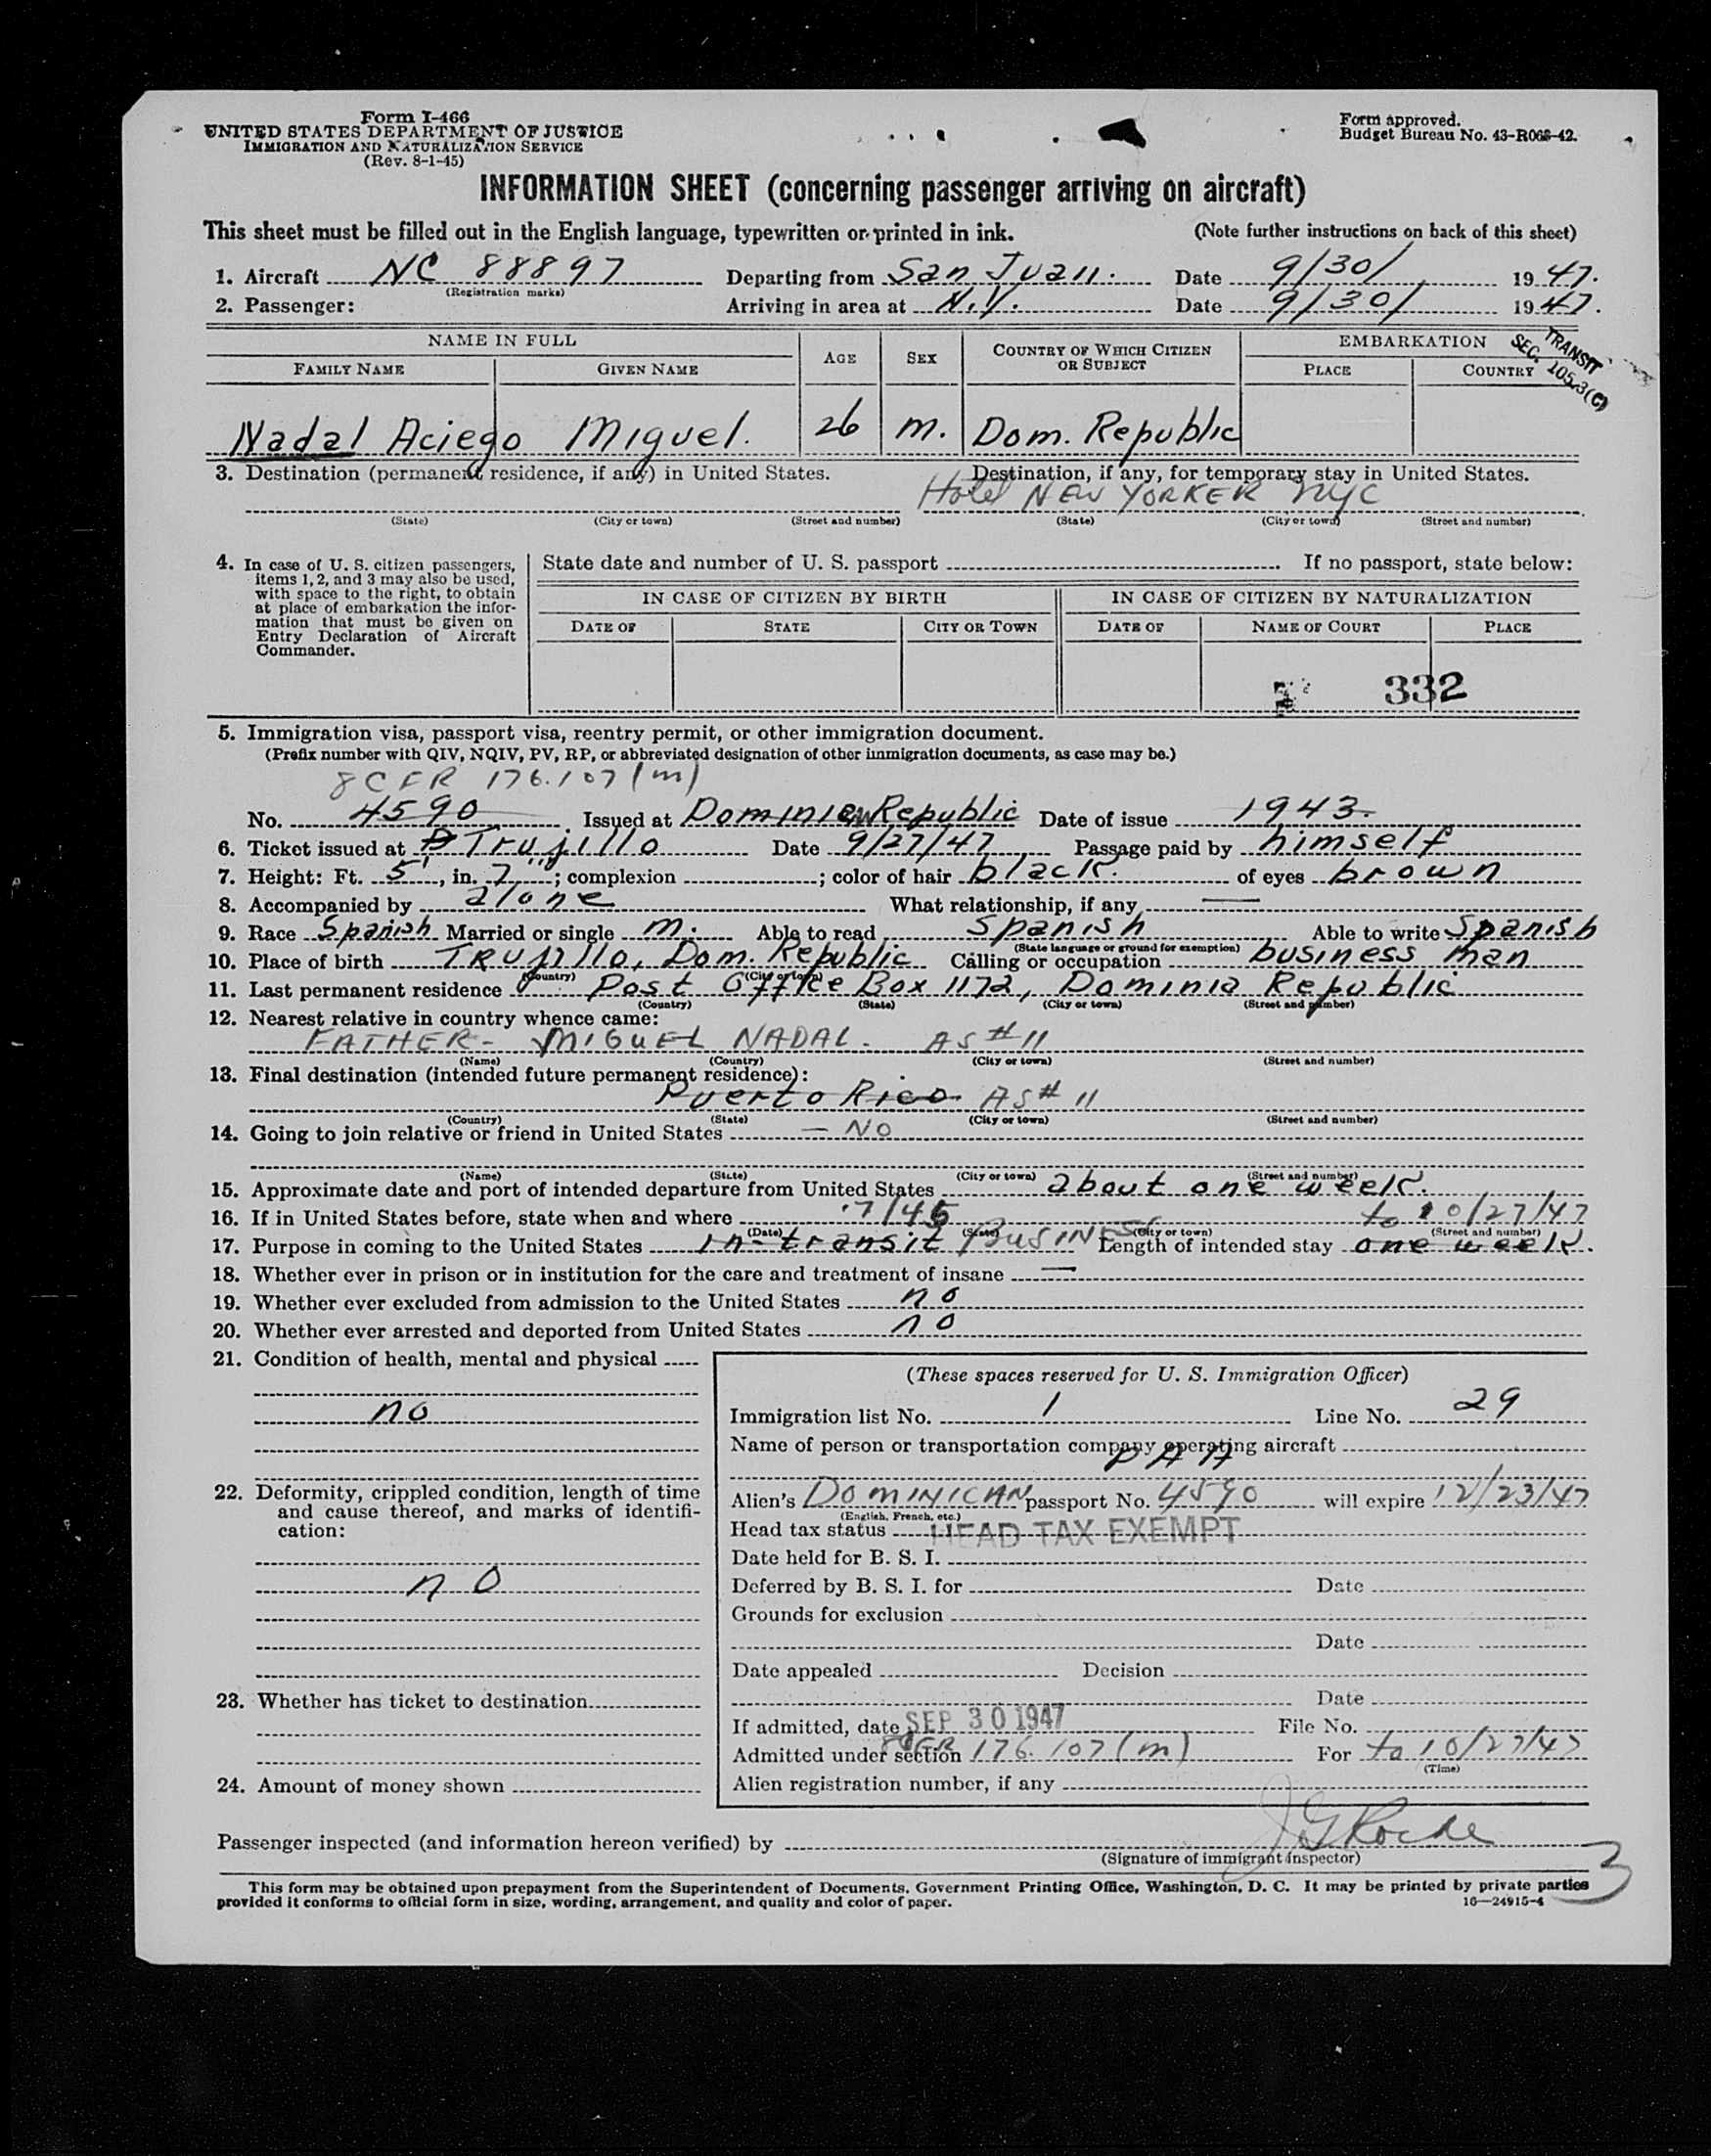 Form I-466
UNITED STATES DEPARTMENT OF JUSTICE
IMMIGRATION AND NATURALIZATION SERVICE
(Rev. 8-1-45)
Form approved.
Budget Bureau No. 43-R068-42.
INFORMATION SHEET (concerning passenger arriving on aircraft)
This sheet must be filled out in the English language, typewritten or printed in ink. (Note further instructions on back of this sheet)
1. Aircraft NC 88897 Departing from San Juan. Date 9/30/ 1947.
(Registration marks)
2. Passenger: Arriving in area at N.Y. Date 9/30/ 1947.
NAME IN FULL AGE SEX COUNTRY OF WHICH CITIZEN OR SUBJECT EMBARKATION
FAMILY NAME GIVEN NAME PLACE COUNTRY
TRANSIT
SEC. 105.3(C)
Nadal Aciego Miguel. 26 m. Dom. Republic
3. Destination (permanent residence, if any) in United States. Destination, if any, for temporary stay in United States.
Hotel NEW YORKER NYC
(State) (City or town) (Street and number) (State) (City or town) (Street and number)
4. In case of U. S. citizen passengers, items 1, 2, and 3 may also be used, with space to the right, to obtain at place of embarkation the information that must be given on Entry Declaration of Aircraft Commander.
State date and number of U. S. passport If no passport, state below:
IN CASE OF CITIZEN BY BIRTH IN CASE OF CITIZEN BY NATURALIZATION
DATE OF STATE CITY OR TOWN DATE OF NAME OF COURT PLACE
332
5. Immigration visa, passport visa, reentry permit, or other immigration document.
(Prefix number with QIV, NQIV, PV, RP, or abbreviated designation of other immigration documents, as case may be.)
8 CFR 176.107(m)
No. 4590 Issued at Dominican Republic Date of issue 1943.
6. Ticket issued at Trujillo Date 9/27/47 Passage paid by himself
7. Height: Ft. 5', in. 7"; complexion ; color of hair black. of eyes brown
8. Accompanied by alone What relationship, if any —
9. Race Spanish Married or single m. Able to read Spanish Able to write Spanish
(State language or ground for exemption)
10. Place of birth Trujillo, Dom. Republic Calling or occupation business man
(Country) (City or town)
11. Last permanent residence Post Office Box 1172, Dominia Republic
(Country) (State) (City or town) (Street and number)
12. Nearest relative in country whence came:
FATHER - MIGUEL NADAL. AS # 11
(Name) (Country) (City or town) (Street and number)
13. Final destination (intended future permanent residence):
Puerto Rico AS # 11
(Country) (State) (City or town) (Street and number)
14. Going to join relative or friend in United States — NO
(Name) (State) (City or town) (Street and number)
15. Approximate date and port of intended departure from United States about one week.
16. If in United States before, state when and where 7/45 to 10/27/47
(Date) (State) (City or town) (Street and number)
17. Purpose in coming to the United States in-transit BUSINESS Length of intended stay one week.
18. Whether ever in prison or in institution for the care and treatment of insane —
19. Whether ever excluded from admission to the United States no
20. Whether ever arrested and deported from United States no
21. Condition of health, mental and physical
no
22. Deformity, crippled condition, length of time and cause thereof, and marks of identification:
no
23. Whether has ticket to destination
24. Amount of money shown
(These spaces reserved for U. S. Immigration Officer)
Immigration list No. 1 Line No. 29
Name of person or transportation company operating aircraft
PAA
Alien's DOMINICAN passport No. 4590 will expire 12/23/47
(English, French, etc.)
Head tax status HEAD TAX EXEMPT
Date held for B. S. I.
Deferred by B. S. I. for Date
Grounds for exclusion
Date
Date appealed Decision
Date
If admitted, date SEP 30 1947 File No.
Admitted under section 8 CFR 176.107(m) For to 10/27/47
(Time)
Alien registration number, if any
Passenger inspected (and information hereon verified) by J G Roche
(Signature of immigrant inspector)
3
This form may be obtained upon prepayment from the Superintendent of Documents, Government Printing Office, Washington, D. C. It may be printed by private parties
provided it conforms to official form in size, wording, arrangement, and quality and color of paper. 16—24915-4